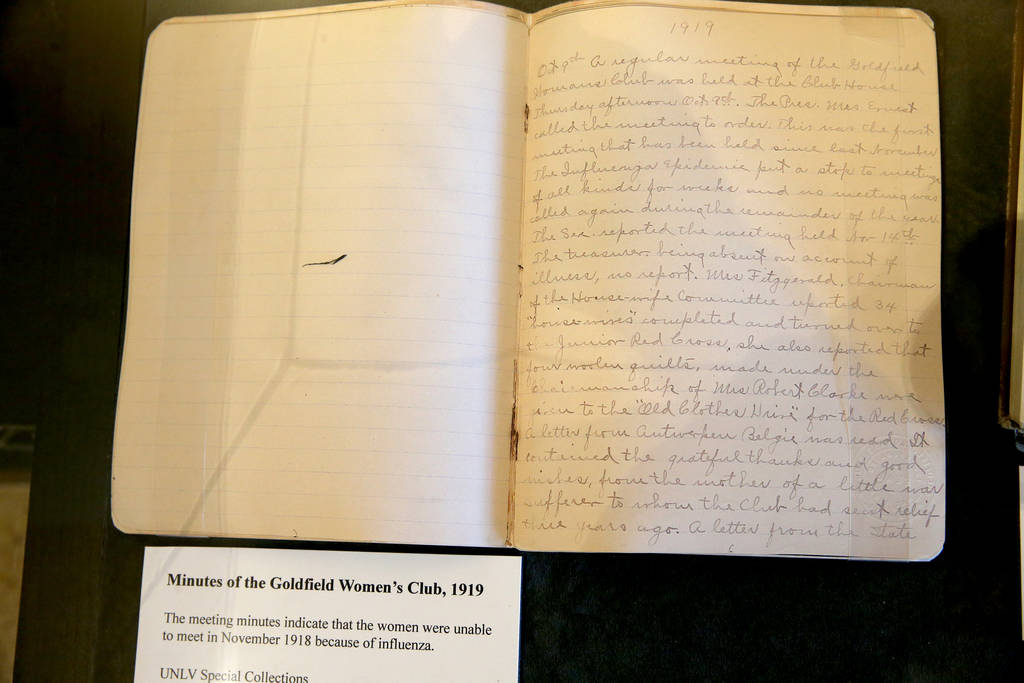 1919
Oct 9th A regular meeting of the Goldfield
Womans Club was held at the Club House
Thursday afternoon Oct. 9th. The Pres. Mrs Ernest
called the meeting to order. This was the first
meeting that has been held since last November
The Influenza Epidemic put a stop to meetings
of all kinds for weeks and no meeting was
called again during the remainder of the year.
The Sec. reported the meeting held Nov 14th
The treasurer being absent on account of
illness, no report. Mrs Fitzgerald, Chairman
of the House-wife Committee reported 34
"house-wives" completed and turned over to
the Junior Red Cross, she also reported that
four woolen quilts, made under the
Chairmanship of Mrs Robert Clarke were
given to the "Old Clothes Drive" for the Red Cross
A letter from Antwerpen Belgie was read. It
contained the grateful thanks and good
wishes, from the mother of a little war
sufferer to whom the Club had sent relief
three years ago. A letter from the State
Minutes of the Goldfield Women's Club, 1919
The meeting minutes indicate that the women were unable
to meet in November 1918 because of influenza.
UNLV Special Collections